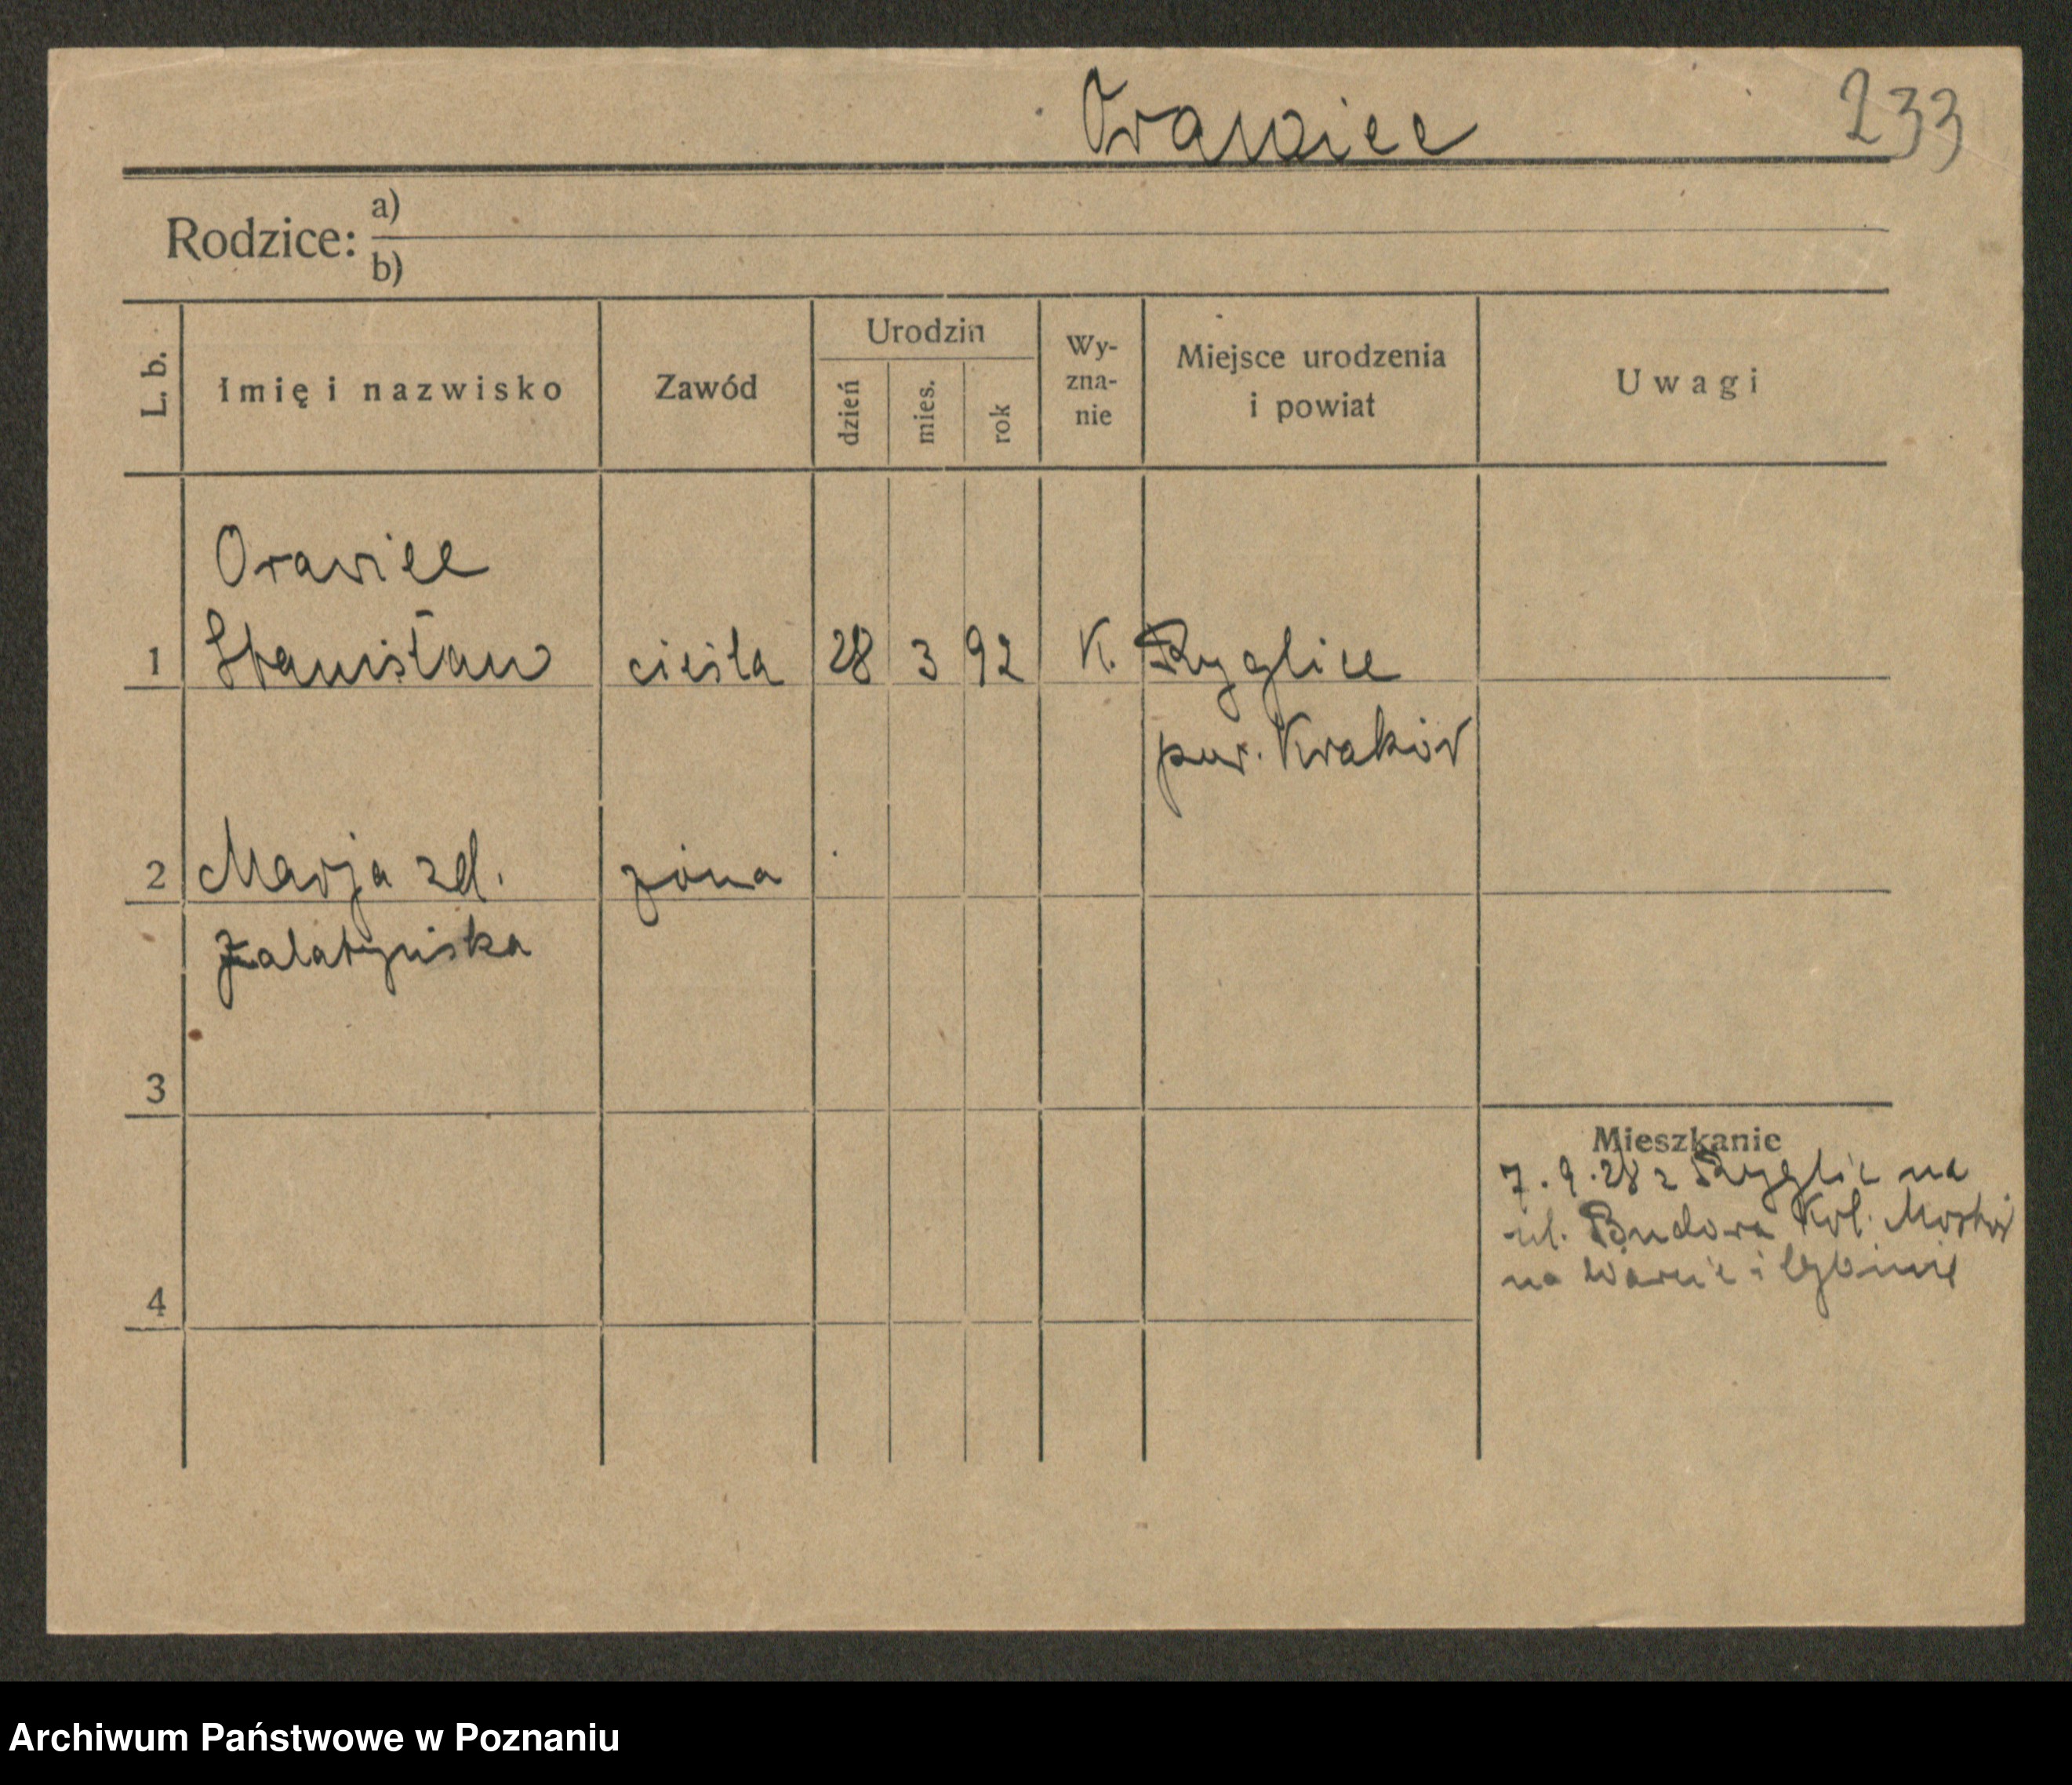 Orawiec
233
Rodzice: a)
b)
L. b.
Imię i nazwisko
Zawód
Urodzin
dzień
mies.
rok
Wy-
zna-
nie
Miejsce urodzenia
i powiat
Uwagi
Orawiec
1 Stanisław cieśla 28 3 92 K. Ryglice
pow. Kraków
2 Marja zd. żona
Zalatyńska
3
Mieszkanie
7.9.28 z Ryglic na
ul. Budowa Kol. Mostów
na Warcie i Cybinie
4
Archiwum Państwowe w Poznaniu